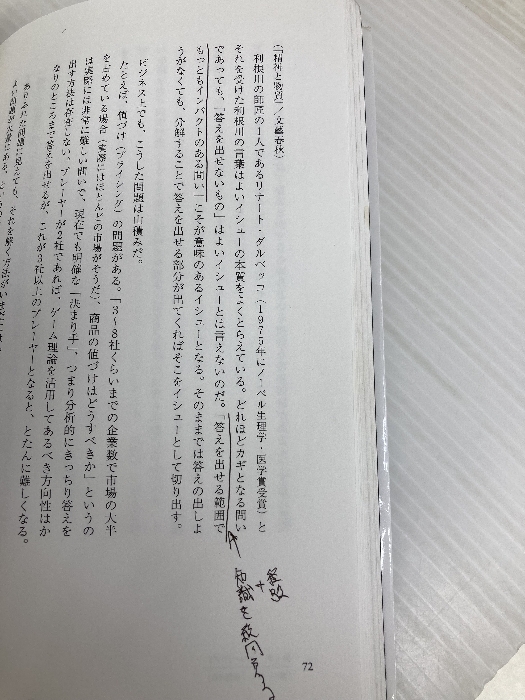 (『精神と物質』/文藝春秋)
利根川の師匠の1人であるリナート・ダルベッコ(1975年にノーベル生理学・医学賞受賞)と
それを受けた利根川の言葉はよいイシューの本質をよくとらえている。どれほどカギとなる問い
であっても、「答えを出せないもの」はよいイシューとは言えないのだ。「答えを出せる範囲で
もっともインパクトのある問い」こそが意味のあるイシューとなる。そのままでは答えの出しよ
うがなくても、分解することで答えを出せる部分が出てくればそこをイシューとして切り出す。
ビジネス上でも、こうした問題は山積みだ。
たとえば、値づけ(プライシング)の問題がある。「3〜8社くらいまでの企業数で市場の大半
を占めている場合(実際にはほとんどの市場がそうだ)、商品の値づけはどうすべきか」というの
は実際には非常に難しい問いで、現在でも明確な「決まり手」、つまり分析的にきっちり答えを
出す方法は存在しない。プレーヤーが2社であれば、ゲーム理論を活用してあるべき方向性はか
なりのところまで答えを出せるが、これが3社以上のプレーヤーとなると、とたんに難しくなる。
ありふれた問題に見えても、それを解く方法がいまだに
経験
+
知識を総
72